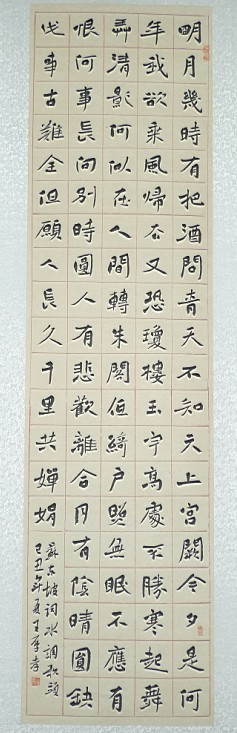 明月幾時有把酒問青天不知天上宮闕今夕是何
年我欲乘風歸去又恐瓊樓玉宇高處不勝寒起舞
弄清影何似在人間轉朱閣低綺戶照無眠不應有
恨何事長向別時圓人有悲歡離合月有陰晴圓缺
此事古難全但願人長久千里共嬋娟
蘇東坡詞水調歌頭
己丑年夏王